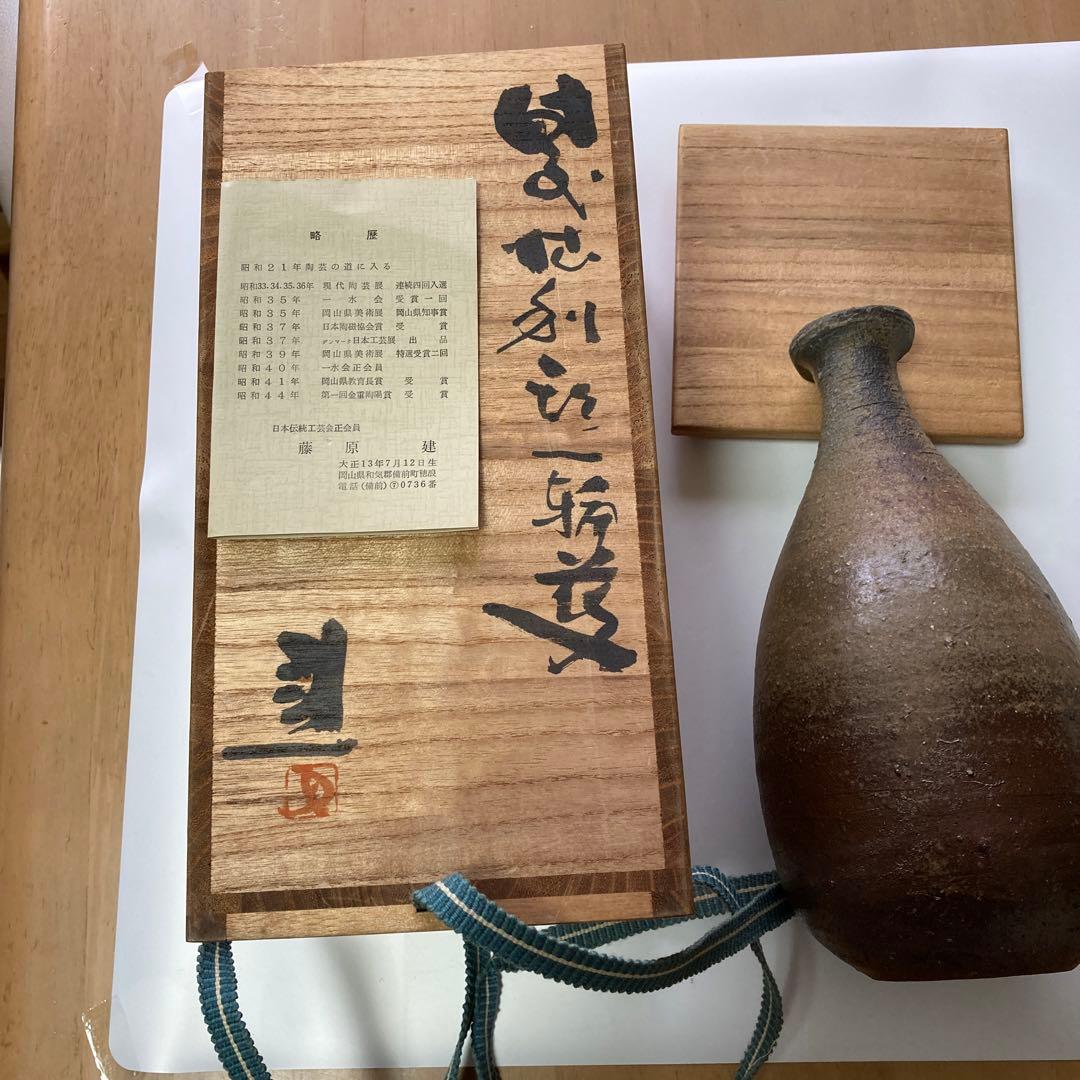 略歴
昭和21年陶芸の道に入る
昭和33.34.35.36年 現代陶芸展 連続四回入選
昭和35年 一水会 受賞一回
昭和35年 岡山県美術展 岡山県知事賞
昭和37年 日本陶磁協会賞 受賞
昭和37年 デンマーク日本工芸展 出品
昭和39年 岡山県美術展 特選受賞二回
昭和40年 一水会正会員
昭和41年 岡山県教育長賞 受賞
昭和44年 第一回金重陶陽賞 受賞
日本伝統工芸会正会員
藤原建
大正13年7月12日生
岡山県和気郡備前町穂浪
電話(備前)⑦0736番
一輪